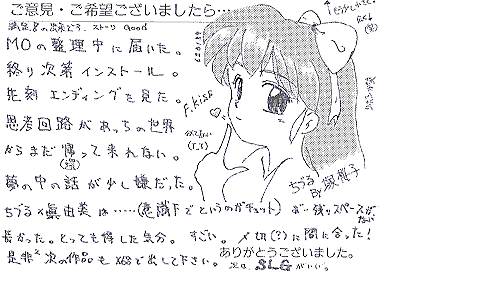 ご意見・ご希望ございましたら…
MOの整理中に届いた。
終り次第インストール。
先刻エンディングを見た。
思考回路があっちの世界
からまだ帰って来れない。
(還)
夢の中の話が少し嫌だった。
ちづる×眞由美は……(意識下でというのがチョット)
長かった。とっても得した気分。すごい。〆切(?)に間に合った!
是非次の作品もX68で出して下さい。
ありがとうございました。
次は、SLGがいい。
F.kiss
(T_T)
ちづる
BY